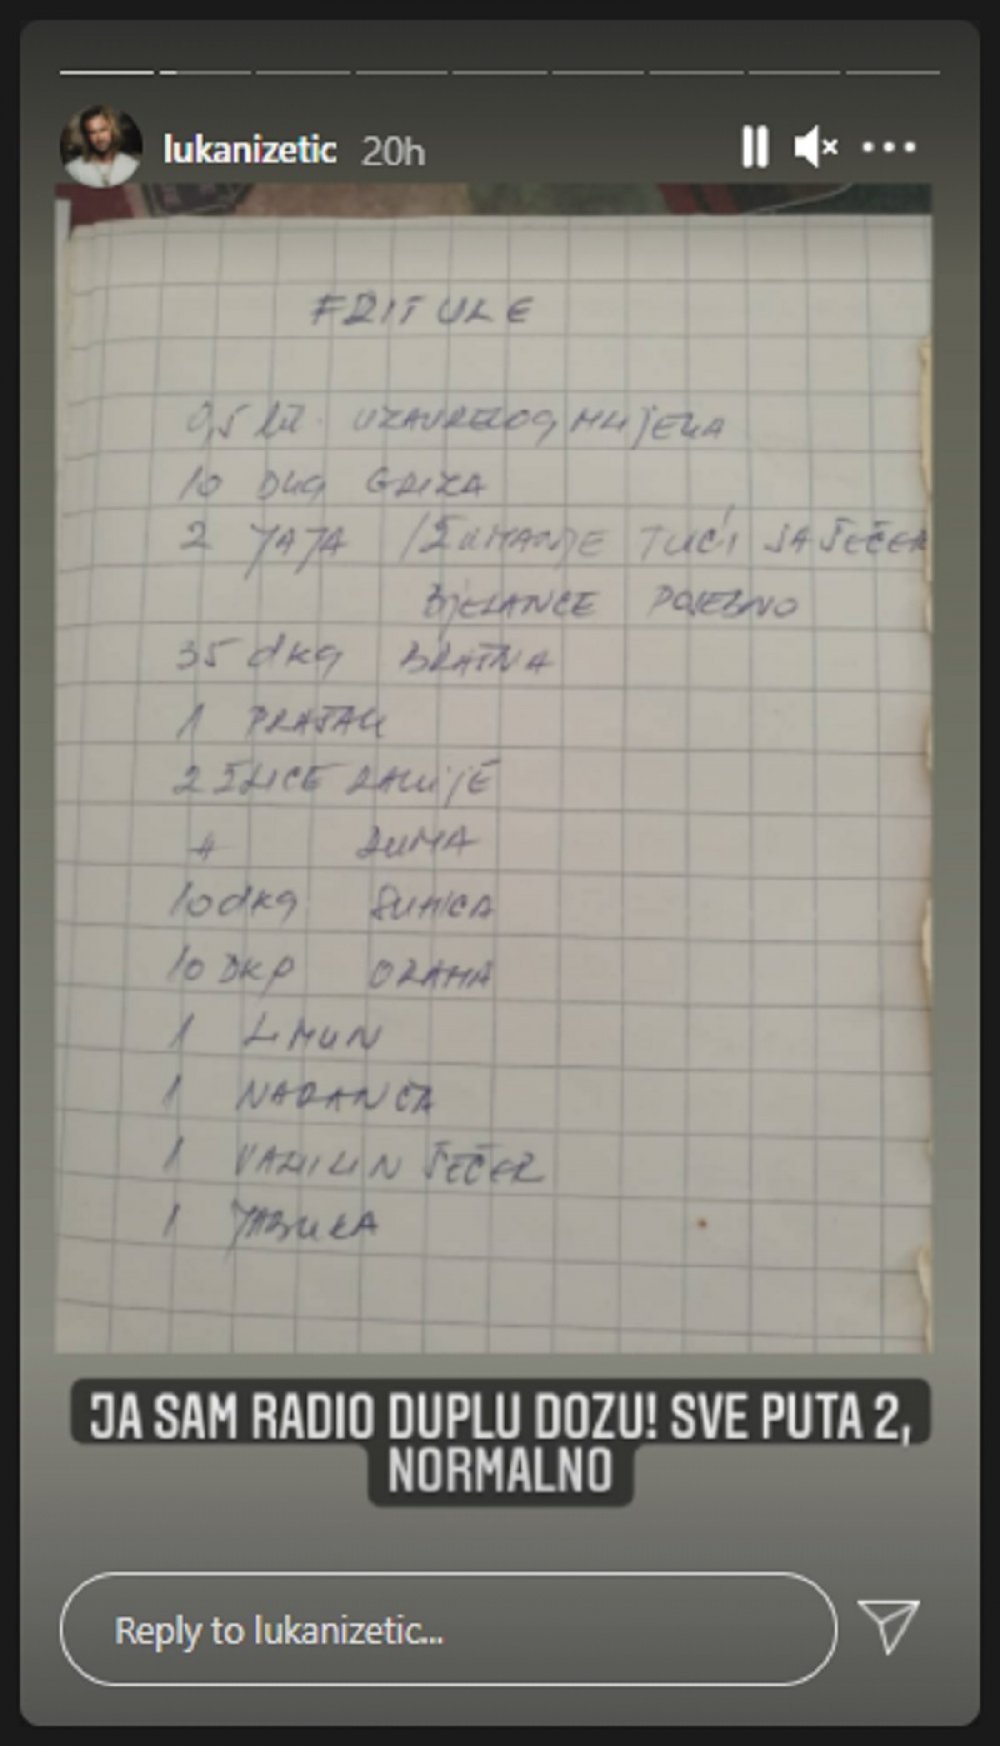 lukanizetic 20h
FRITULE
0,5 lit. UZAVRELOG MLIJEKA
10 DKG GRIZA
2 JAJA / ŽUMANJE TUĆI SA ŠEĆER
BJELANCE POSEBNO
35 dkg BRAŠNA
1 PRAŠAK
2 ŽLICE RAKIJE
4 RUMA
10 dkg
10 DKG ORAHA
1 LIMUN
1 NARANČA
1 VANILIN ŠEĆER
1 JABUKA
JA SAM RADIO DUPLU DOZU! SVE PUTA 2,
NORMALNO
Reply to lukanizetic...